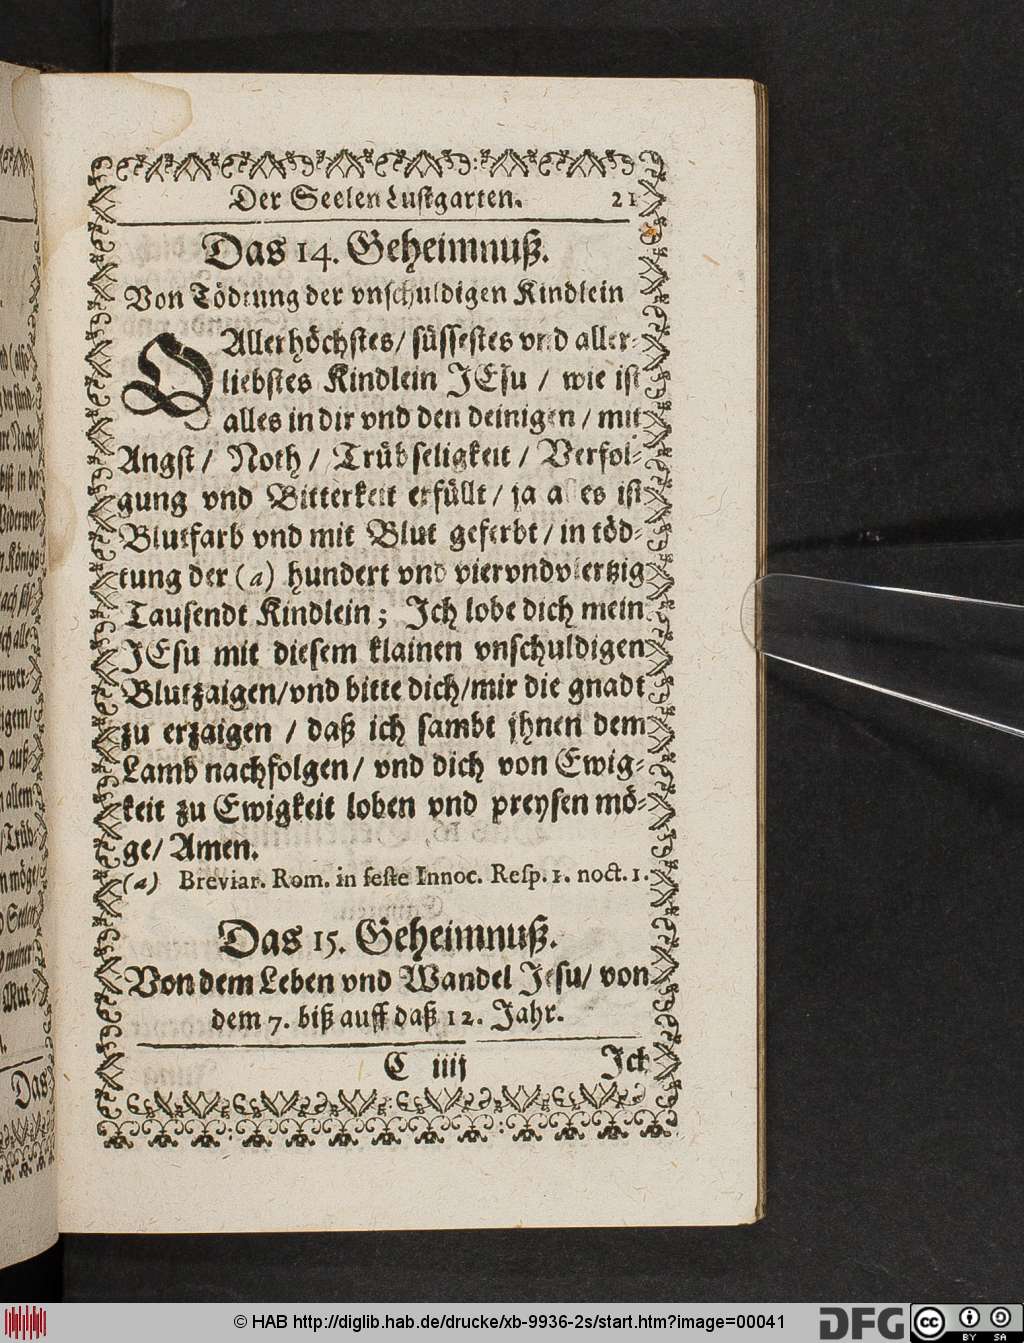 Der Seelen Lustgarten. 21
Das 14. Geheimnuß.
Von Tödtung der vnschuldigen Kindlein
O Allerhöchstes/ süssestes vnd aller-
liebstes Kindlein JEsu / wie ist
alles in dir vnd den deinigen / mit
Angst/ Noth/ Trübseligkeit / Verfol-
gung vnd Bitterkeit erfüllt / ja alles ist
Blutfarb vnd mit Blut geferbt / in töd-
tung der (a) hundert vnd viervndviertzig
Tausendt Kindlein ; Jch lobe dich mein
JEsu mit diesem klainen vnschuldigen
Blutzaigen/ vnd bitte dich/ mir die gnadt
zu erzaigen / daß ich sambt jhnen dem
Lamb nachfolgen/ vnd dich von Ewig-
keit zu Ewigkeit loben vnd preysen mö-
ge/ Amen.
(a) Breviar. Rom. in feste Innoc. Resp. 1. noct. 1.
Das 15. Geheimnuß.
Von dem Leben vnd Wandel Jesu/ von
dem 7. biß auff daß 12. Jahr.
C iiij Jch
Das
© HAB http://diglib.hab.de/drucke/xb-9936-2s/start.htm?image=00041
DFG
cc BY SA